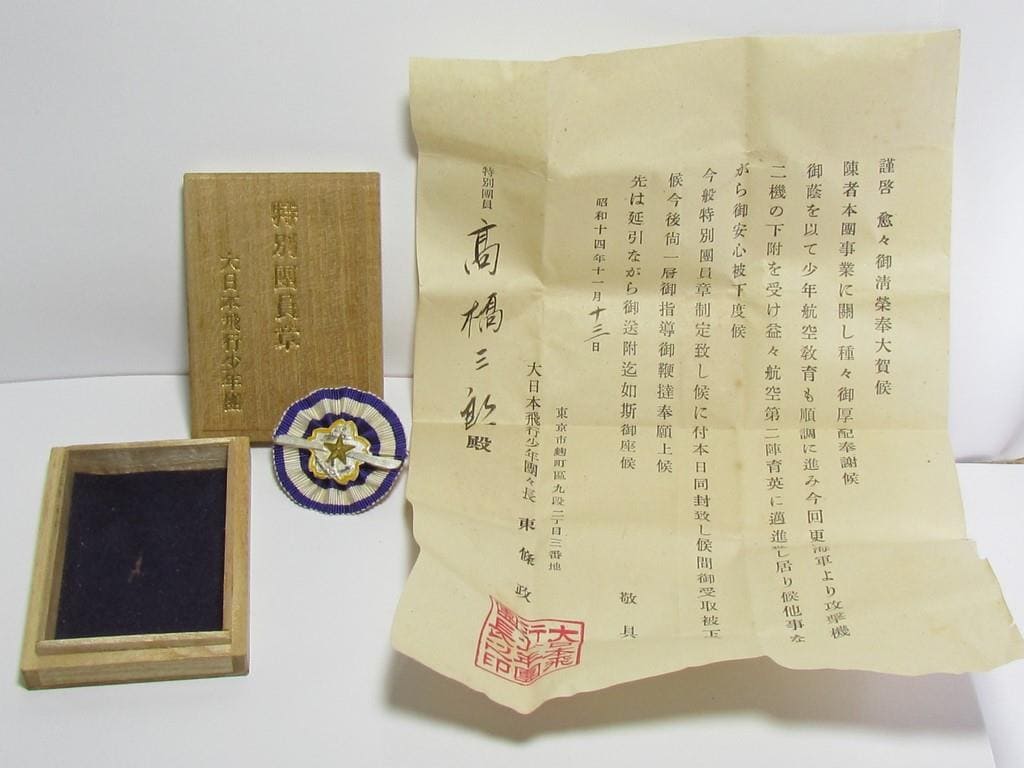 特別團員章
大日本飛行少年團
謹啓　愈々御淸榮奉大賀候
陳者本團事業に關し種々御厚配奉謝候
御蔭を以て少年航空敎育も順調に進み今回更海軍より攻擊機
二機の下附を受け益々航空第二陣育英に邁進し居り候他事な
がら御安心被下度候
今般特別團員章制定致し候に付本日同封致し候間御受取被下
候今後尙一層御指導御鞭撻奉願上候
先は延引ながら御送附迄如斯御座候
敬具
昭和十四年十一月十三日
東京市麴町區九段二丁目三番地
大日本飛行少年團々長　東條政
特別團員　高橋三郎殿
大日本飛
行少年團
團長之印